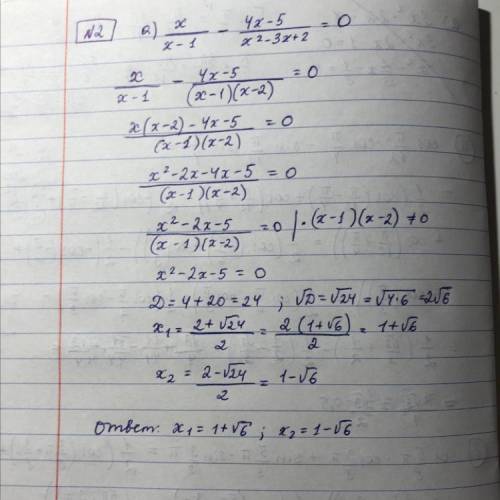 №2 а) x/(x-1) - (4x-5)/(x²-3x+2) = 0
x/(x-1) - (4x-5)/((x-1)(x-2)) = 0
(x(x-2)-4x-5)/((x-1)(x-2)) = 0
(x²-2x-4x-5)/((x-1)(x-2)) = 0
(x²-2x-5)/((x-1)(x-2)) = 0 | ·(x-1)(x-2) ≠ 0
x²-2x-5 = 0
D = 4+20 = 24 ; √D = √24 = √4·6 = 2√6
x₁ = (2+√24)/2 = 2(1+√6)/2 = 1+√6
x₂ = (2-√24)/2 = 1-√6
Ответ: x₁ = 1+√6 ; x₂ = 1-√6